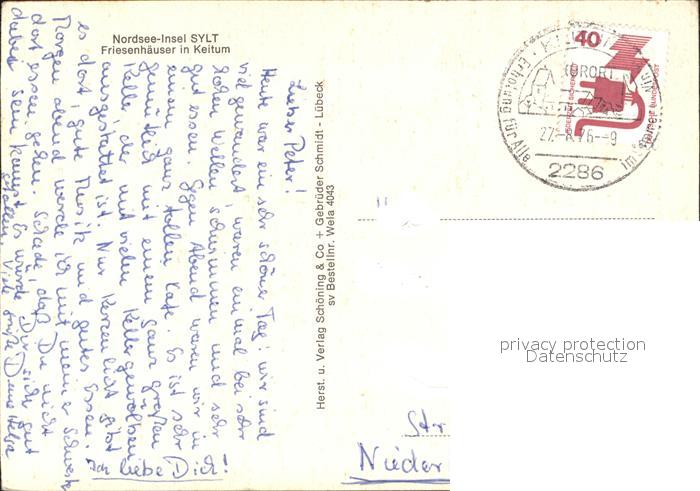 Nordsee-Insel SYLT
Friesenhäuser in Keitum
Lieber Peter!
Heute war ein sehr schöner Tag! wir sind
viel gewandert, waren einmal bei sehr
hohen Wellen schwimmen und sehr
gut essen. Gegen Abend waren wir in
einem ganz tollen Café. Es ist sehr
gemütlich mit einem ganz großen
Keller der mit vielen Kellergewölben
ausgestattet ist. Nur Kerzenlicht gibt
es dort, gute Musik und gutes Essen.
Morgen abend werde ich mit meiner Schwester
dort essen gehen. Schade, daß Du nicht
dabei sein kannst. Es würde Dir sich gut
gefallen. Viele Grüße Deine
Ich liebe Dich!
Herst. u. Verlag Schöning & Co + Gebrüder Schmidt - Lübeck
sv Bestellnr. Wela 4043
40
DEUTSCHE BUNDESPOST
KURORT
Erholung für Alle
27.-8.76--9
2286
privacy protection
Datenschutz
Str
Nieder